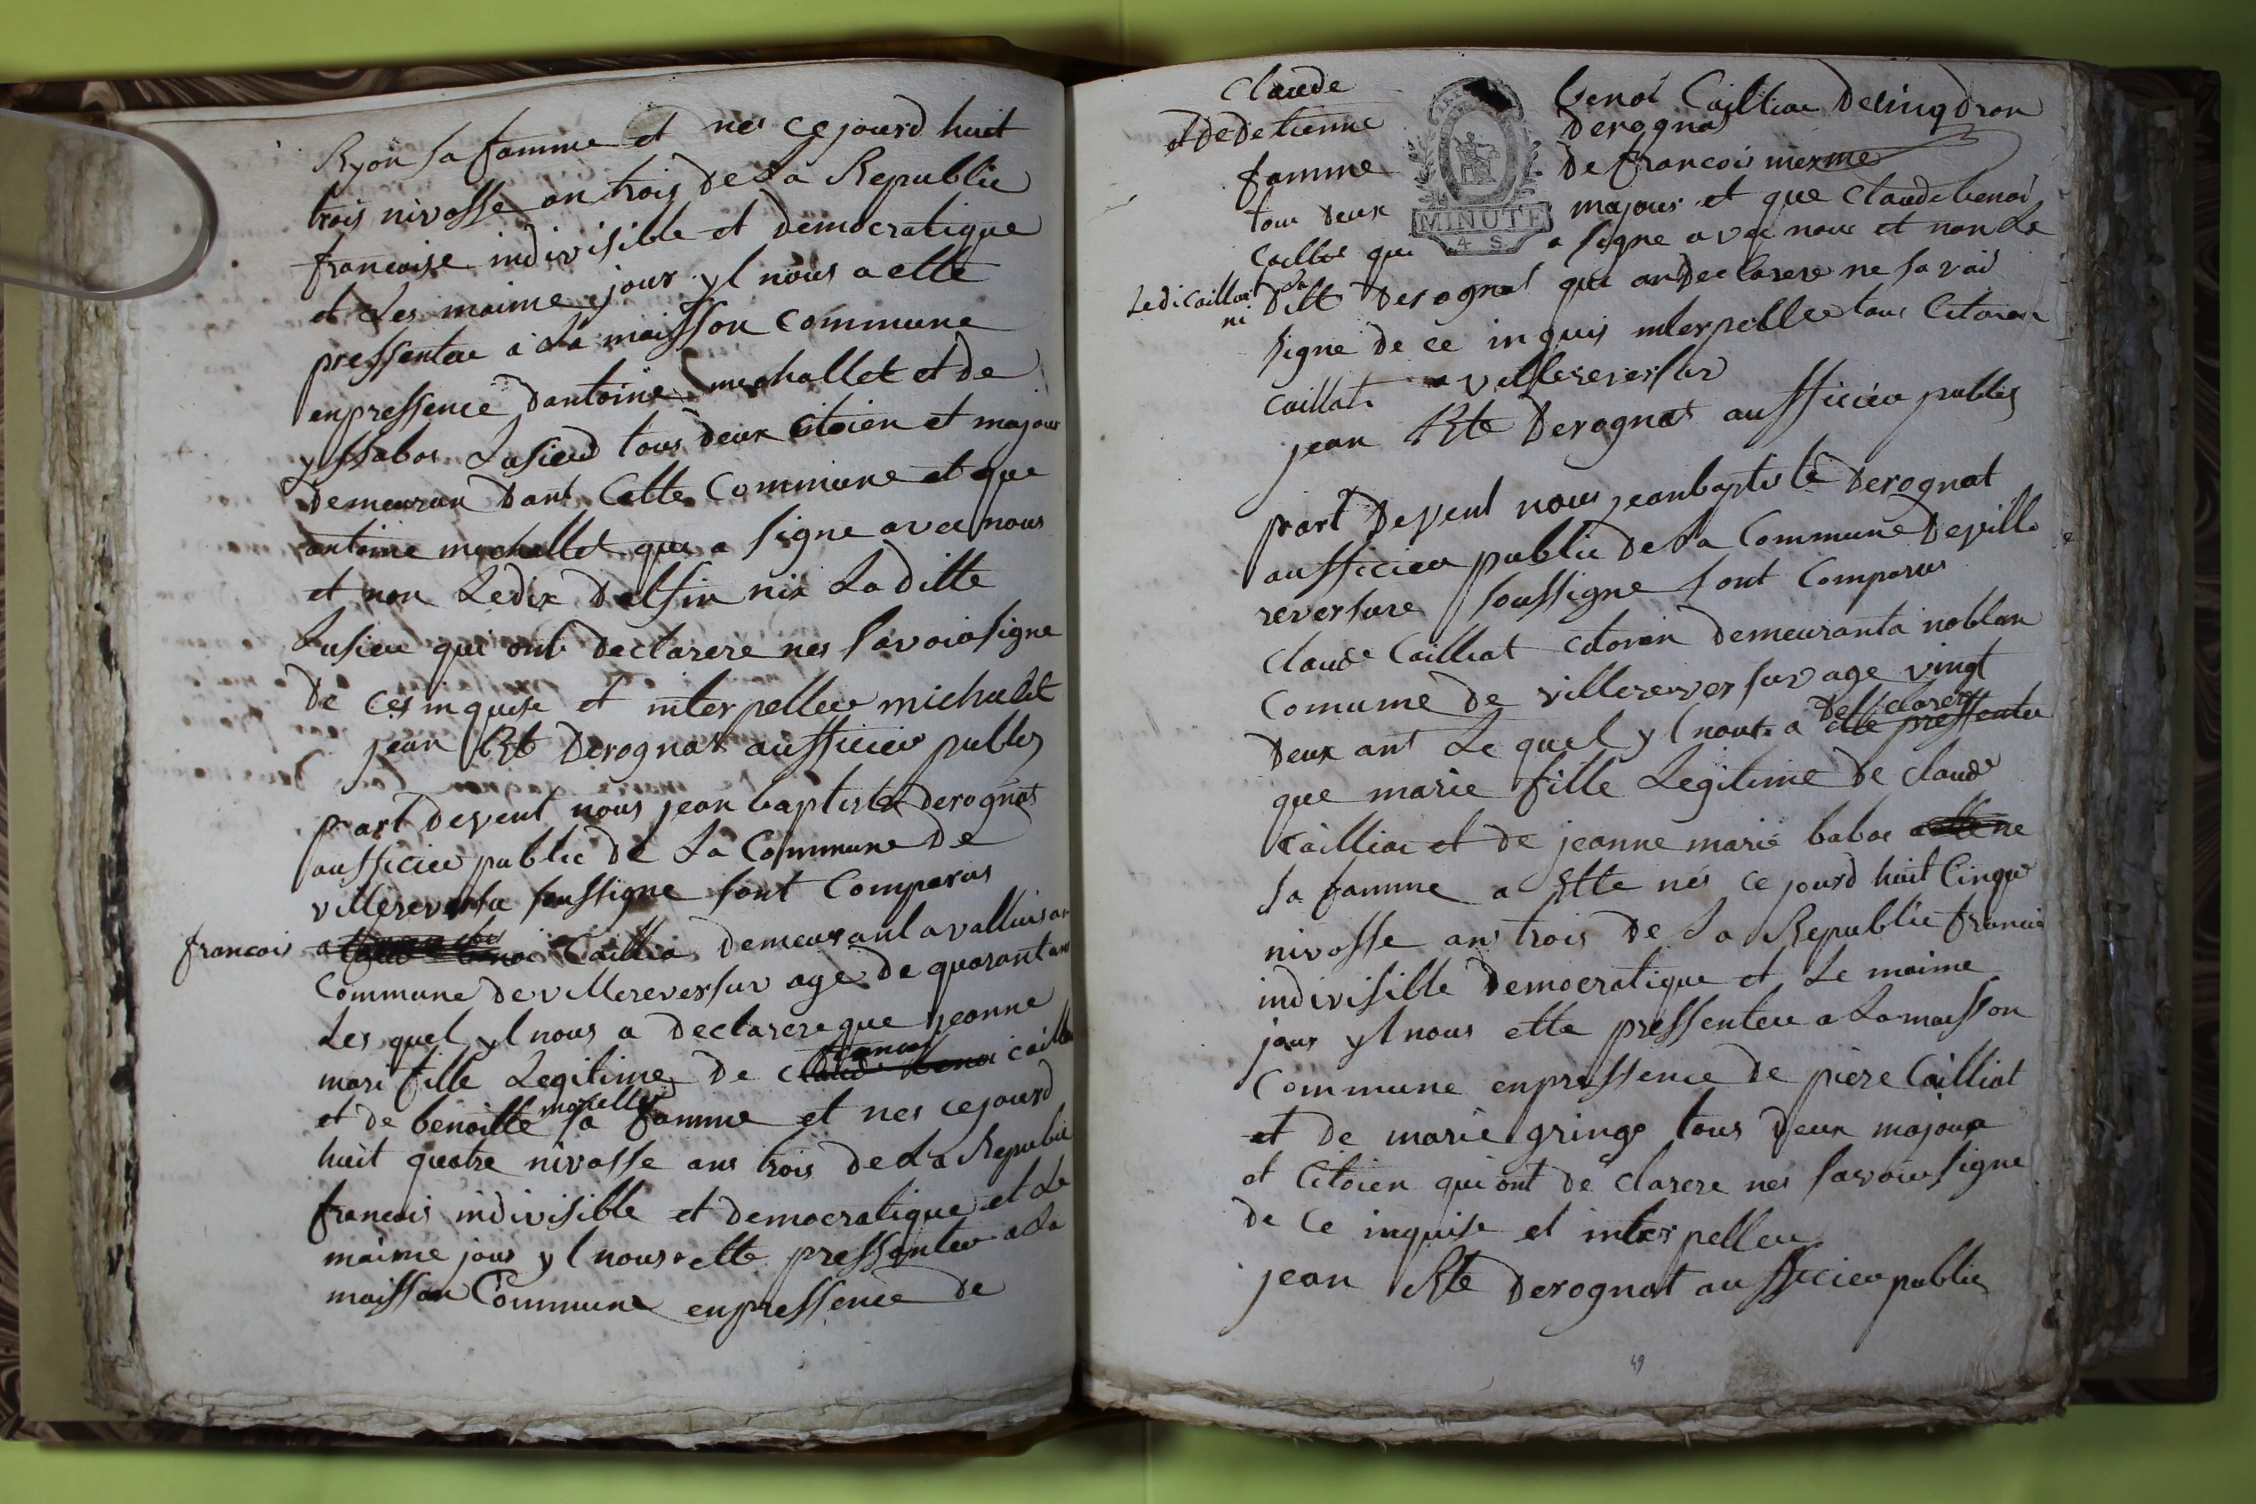 Ryon sa famme et nes ce jourd huit
trois nivosse an trois de La Republic
francaise indivisible et democratique
et Les maime jour yl nous a ette
pressenteu a La maisson commune
enpressence dantoine michallet et de
yssabos Lusieu tous deux citoien et majour
Demeuran Dant Cette Commune et que
antoine michallet qui a signe avec nous
et non Ledix Delfin nix La ditte
Lusieu qui ont declarere nes savoir signe
De ces inquise et interpelleu michalet
jean Bte Derognat aufficieu publes
part Devent nous jean baptiste derognat
aufficieu public de La Commune De
villereversu soussigne sont Comparus
francois
a Caillia demeurant a valluisan
Commune de villereversur age de quarant ans
Les quel yl nous a declarere que jeanne
francois
mari fille Legitime de claude benoi cailla
morelle
et de benoitte sa famme et nes ce jourd
huit quatre nivosse ans trois de La Republic
francais indivisible et democratique et Le
maime jour yl nous a ette pressenteu a La
maisson Commune enpressence de
Claude benoi Cailliac De cinqdron
et De detienne Derognat
famme De francois mesme
tour deux majours et que Claude benoi
Caillot qui a signe avec nous et non Le
Ledi caillat ni La
Ditte Derognat qui on declarere ne savoi
signe de ce inquis interpelleu tous Citoien
Caillat a villereversur
jean Bte Derognat aufficieu publes
part Devent nous jeanbaptiste Derognat
aufficieu public de La Commune De ville
reversure soussigne sont Comparus
claude Cailliat citoien demeurant a noblan
Comume de villereversur age vingt
declarer
Deux ans Le quel yl nous a ette pressenteu
que marie fille Legitime de claude
Cailliac et de jeanne marie babac
sa famme a Ette nes ce jourd huit Cinque
nivosse ans trois de La Republic francais
indivisible Democratique et Le maime
jour yl nous ette pressenteu a La maisson
Commune enpressence de piere Cailliat
et de marie gringe tous deux majour
et Citoien qui ont declarere nes savoir signe
de Ce inquise et interpelleu
jean Bte Derognat aufficieu public
MINUTE
4 S
49